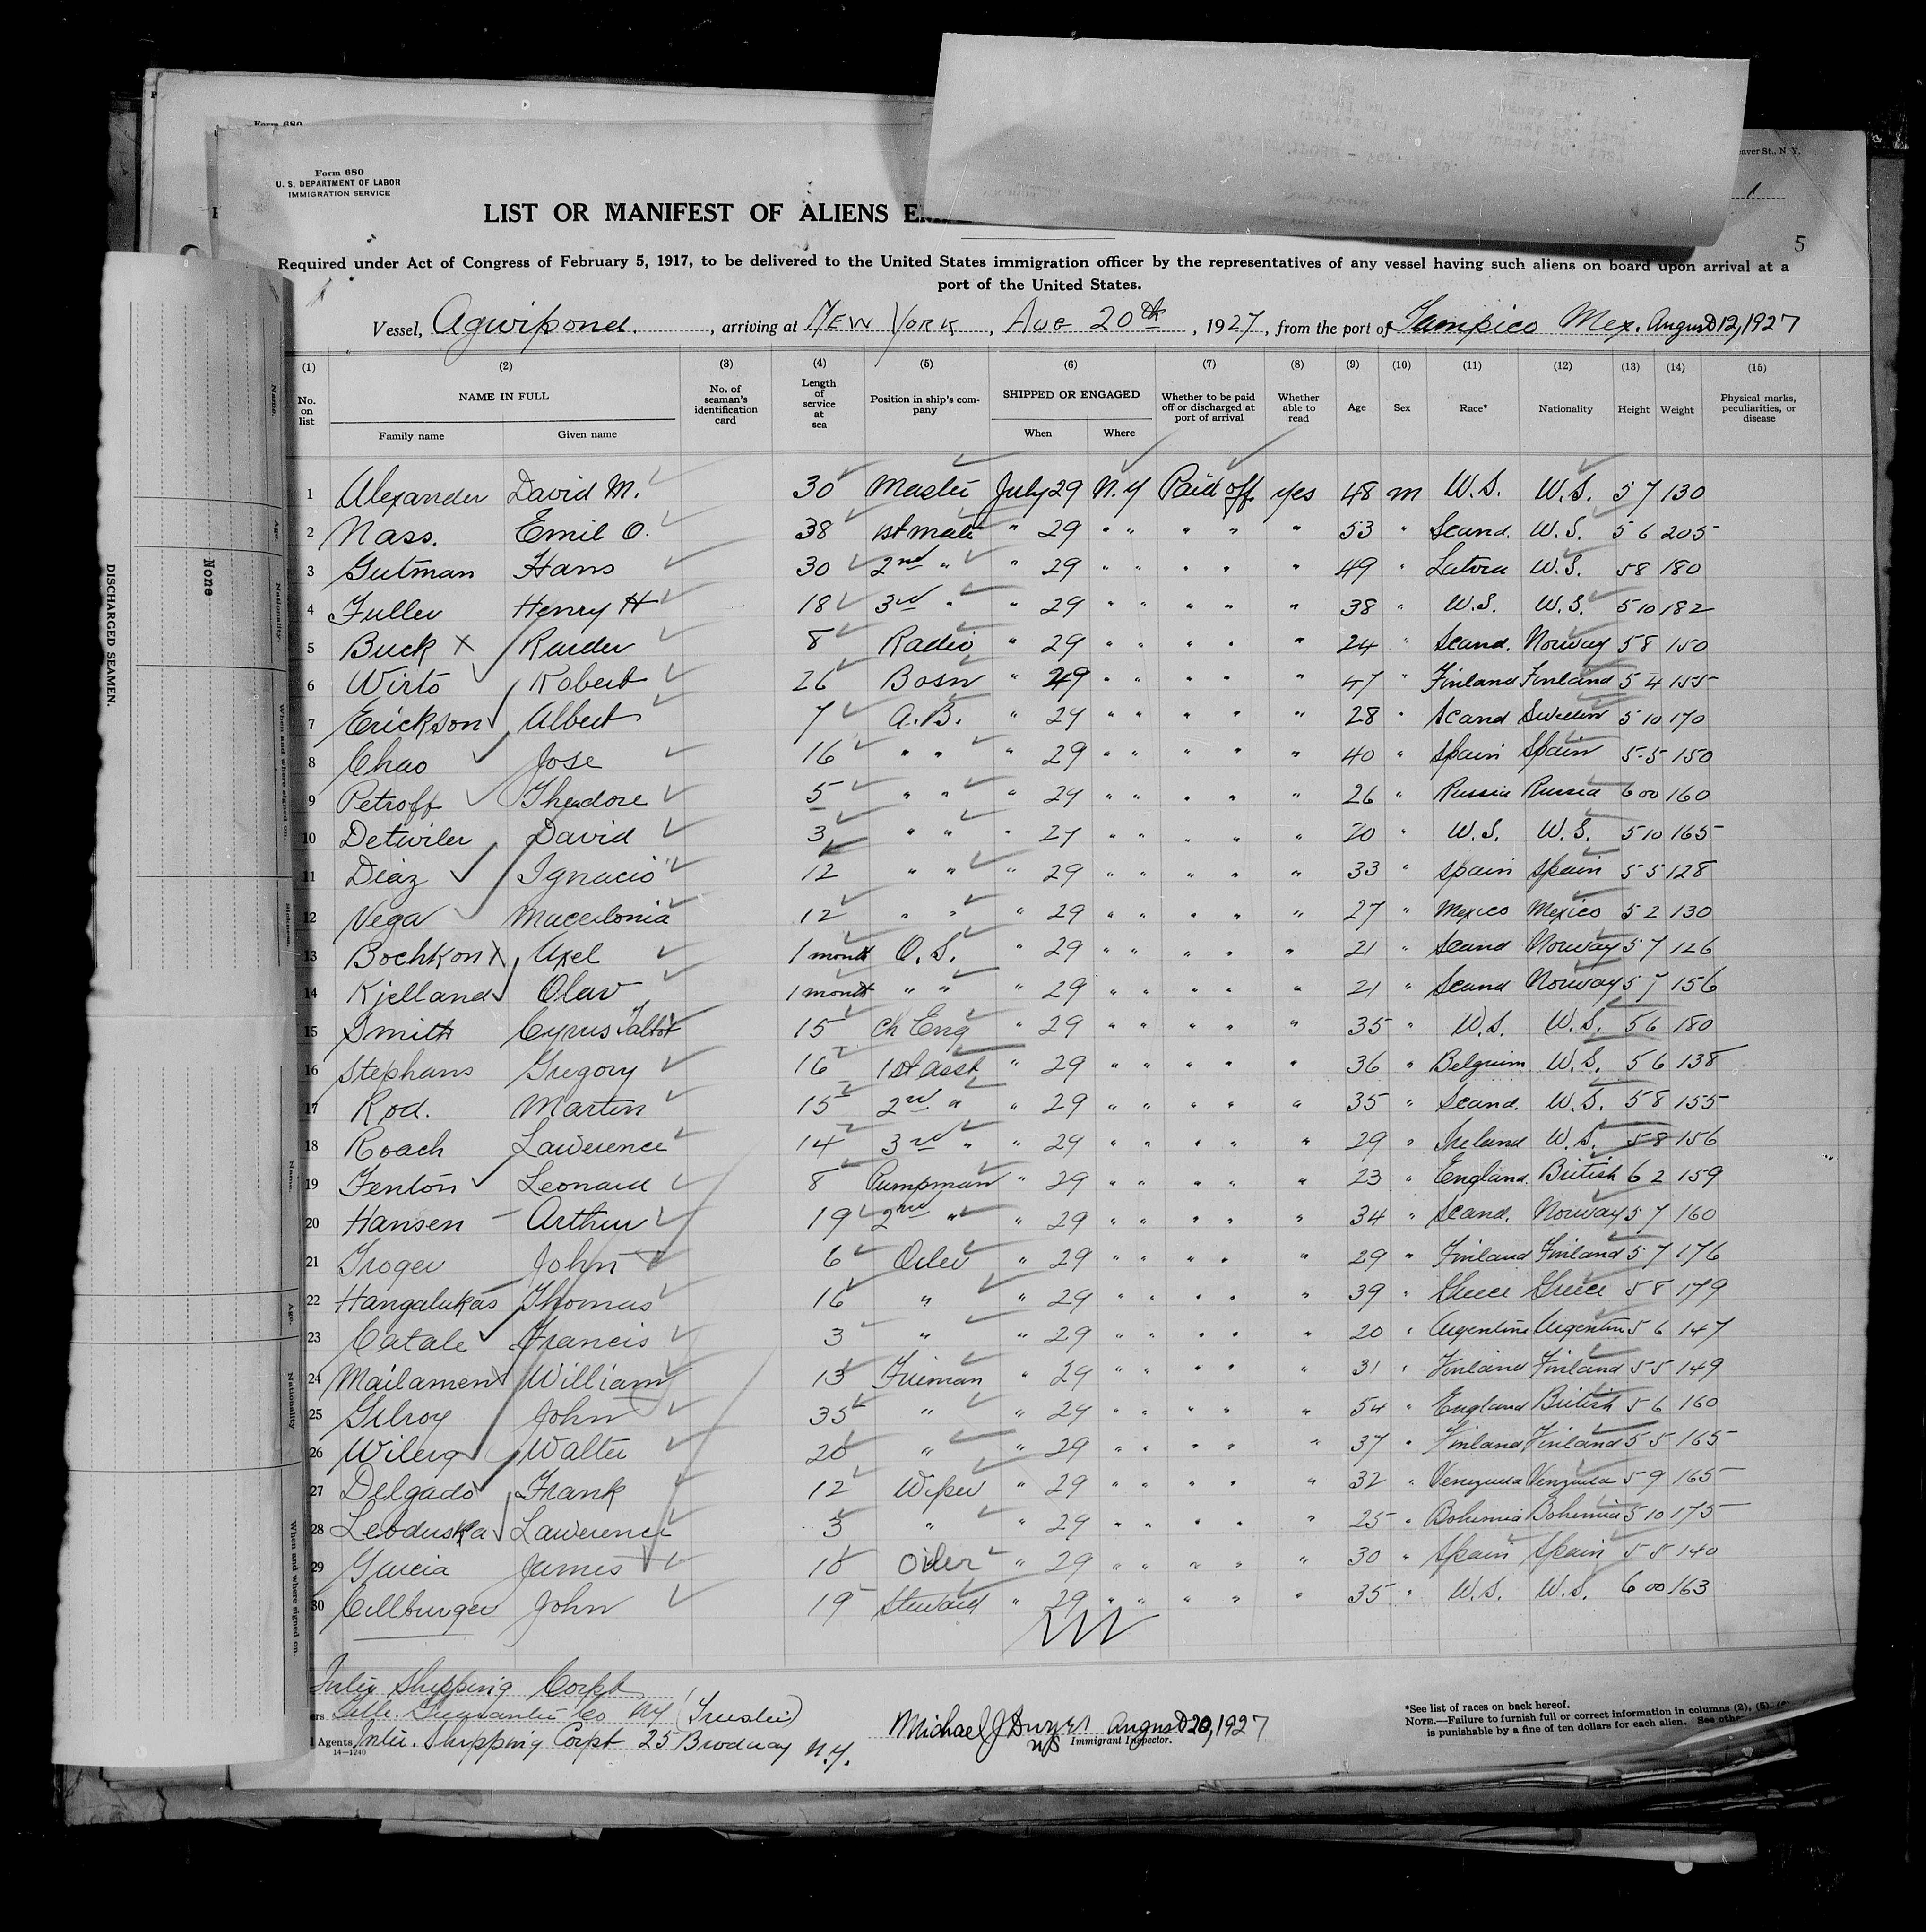 Form 680
Form 680
U. S. DEPARTMENT OF LABOR
IMMIGRATION SERVICE
eaver St., N. Y.
1
LIST OR MANIFEST OF ALIENS
5
Required under Act of Congress of February 5, 1917, to be delivered to the United States immigration officer by the representatives of any vessel having such aliens on board upon arrival at a
port of the United States.
Vessel, Agwipond, arriving at NEW YORK, AUG 20th, 1927, from the port of Tampico Mex. August 12, 1927
(1) (2) (3) (4) (5) (6) (7) (8) (9) (10) (11) (12) (13) (14) (15)
No. on list NAME IN FULL Family name Given name No. of seaman's identification card Length of service at sea Position in ship's company SHIPPED OR ENGAGED When Where Whether to be paid off or discharged at port of arrival Whether able to read Age Sex Race* Nationality Height Weight Physical marks, peculiarities, or disease
1 Alexander David M. 30 Master July 29 N.Y Paid off. yes 48 m U.S. U.S. 5 7 130
2 Nass. Emil O. 38 1st mate " 29 " " " " " 53 " Scand. U.S. 5 6 205
3 Gutman Hans 30 2nd " " 29 " " " " " 49 " Latvia U.S. 5 8 180
4 Fuller Henry H 18 3rd " " 29 " " " " " 38 " U.S. U.S. 5 10 182
5 Buck X Reider 8 Radio " 29 " " " " " 24 " Scand. Norway 5 8 150
6 Wirto Robert 26 Bosn " 29 " " " " " 47 " Finland Finland 5 4 155
7 Erickson Albert 7 A.B. " 29 " " " " " 28 " Scand Sweden 5 10 170
8 Chao Jose 16 " " " 29 " " " " " 40 " Spain Spain 5-5 150
9 Petroff Theodore 5 " " " 29 " " " " " 26 " Russia Russia 6 00 160
10 Detwiler David 3 " " " 29 " " " " " 20 " U.S. U.S. 5 10 165
11 Diaz Ignacio 12 " " " 29 " " " " " 33 " Spain Spain 5 5 128
12 Vega Macedonia 12 " " " 29 " " " " " 27 " Mexico Mexico 5 2 130
13 Bochkon X Axel 1 month O.S. " 29 " " " " " 21 " Scand Norway 5 7 126
14 Kjelland Olav 1 month " " " 29 " " " " " 21 " Scand Norway 5 7 156
15 Smith Cyrus Talbot 15 Ch Eng " 29 " " " " " 35 " U.S. U.S. 5 6 180
16 Stephans Gregory 16 1st asst " 29 " " " " " 36 " Belgium U.S. 5 6 138
17 Rod. Martin 15 2nd " " 29 " " " " " 35 " Scand. U.S. 5 8 155
18 Roach Lawerence 14 3rd " " 29 " " " " " 29 " Ireland U.S. 5 8 156
19 Fenton Leonard 8 Pumpman " 29 " " " " " 23 " England. British 6 2 159
20 Hansen Arthur 19 2nd " " 29 " " " " " 34 " Scand. Norway 5 7 160
21 Troger John 6 Oiler " 29 " " " " " 29 " Finland Finland 5 7 176
22 Hangalukas Thomas 16 " " 29 " " " " " 39 " Greece Greece 5 8 179
23 Catale Francis 3 " " 29 " " " " " 20 " Argentine Argentin 5 6 147
24 Mailamen William 13 Fireman " 29 " " " " " 31 " Finland Finland 5 5 149
25 Gilroy John 35 " " 29 " " " " " 54 " England British 5 6 160
26 Wiberg Walter 20 " " 29 " " " " " 37 " Finland Finland 5 5 165
27 Delgado Frank 12 Wiper " 29 " " " " " 32 " Venezuela Venzuela 5 9 165
28 Leoduska Lawerence 3 " " 29 " " " " " 25 " Bohemia Bohemia 5 10 175
29 Garcia James 10 Oiler " 29 " " " " " 30 " Spain Spain 5 5 140
30 Cellburger John 19 Steward " 29 " " " " " 35 " U.S. U.S. 6 00 163
Inter Shipping Corpt
Title Guarantee Co NY (Trustee)
Agents, Inter. Shipping Corpt 25 Brodway N.Y.
14—1240
Michael J Dwyer August 20, 1927
Immigrant Inspector.
*See list of races on back hereof.
NOTE.—Failure to furnish full or correct information in columns (2), (5),
is punishable by a fine of ten dollars for each alien. See othe
DISCHARGED SEAMEN.
None
Name.
Age.
Nationality.
When and where signed on.
Sickness.
Name.
Age.
Nationality
When and where signed on.